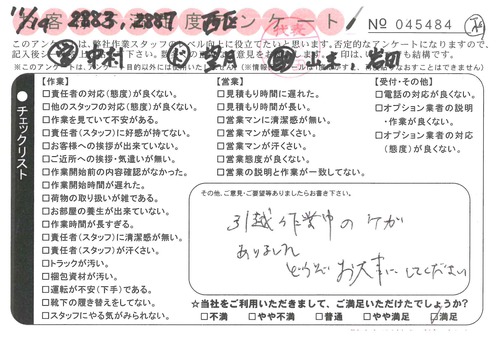 11/12 2883, 2887 西区
お客様満足度アンケート!
代表
No 045484
このアンケートは、弊社作業スタッフのレベル向上に役立てたいと思います。否定的なアンケートになりますので、
記入後
ご意見をお
印は、
も結構です。
(※当社アンケート、アンケート目的以外には使用いたしません
中村
【作業】
□責任者の対応(態度)が良くない。
□他のスタッフの対応(態度)が良くない。
□作業を見ていて不安がある。
□責任者(スタッフ)に好感が持てない。
□お客様への挨拶が出来ていない。
□ご近所への挨拶・気遣いが無い。
□作業開始前の内容確認がなかった。
□作業開始時間が遅れた。
□荷物の取り扱いが雑である。
□お部屋の養生が出来ていない。
□作業時間が長すぎる。
□責任者(スタッフ)に清潔感が無い。
□責任者(スタッフ)が汗くさい。
□トラックが汚い。
□梱包資材が汚い。
□運転が不安(下手)である。
□靴下の履き替えをしてない。
□スタッフにやる気がみられない。
【営業】
□見積もり時間に遅れた。
□見積もり時間が長い。
□営業マンに清潔感が無い。
□営業マンが煙草くさい。
□営業マンが汗くさい。
□営業態度が良くない。
□営業の説明と作業が一致してない。
【受付・その他】
□電話の対応が良くない。
□オプション業者の説明
・作業が良くない。
□オプション業者の対応
(態度)が良くない。
●チェックリスト
その他、ご意見・ご要望等ありましたらお書き下さい。
引越し作業中のケガ
ありましたら
どうぞお大事にしてください
☆当社をご利用いただきまして、ご満足いただけたでしょうか?
□不満 □やや不満 □普通 □やや満足 ☑満足